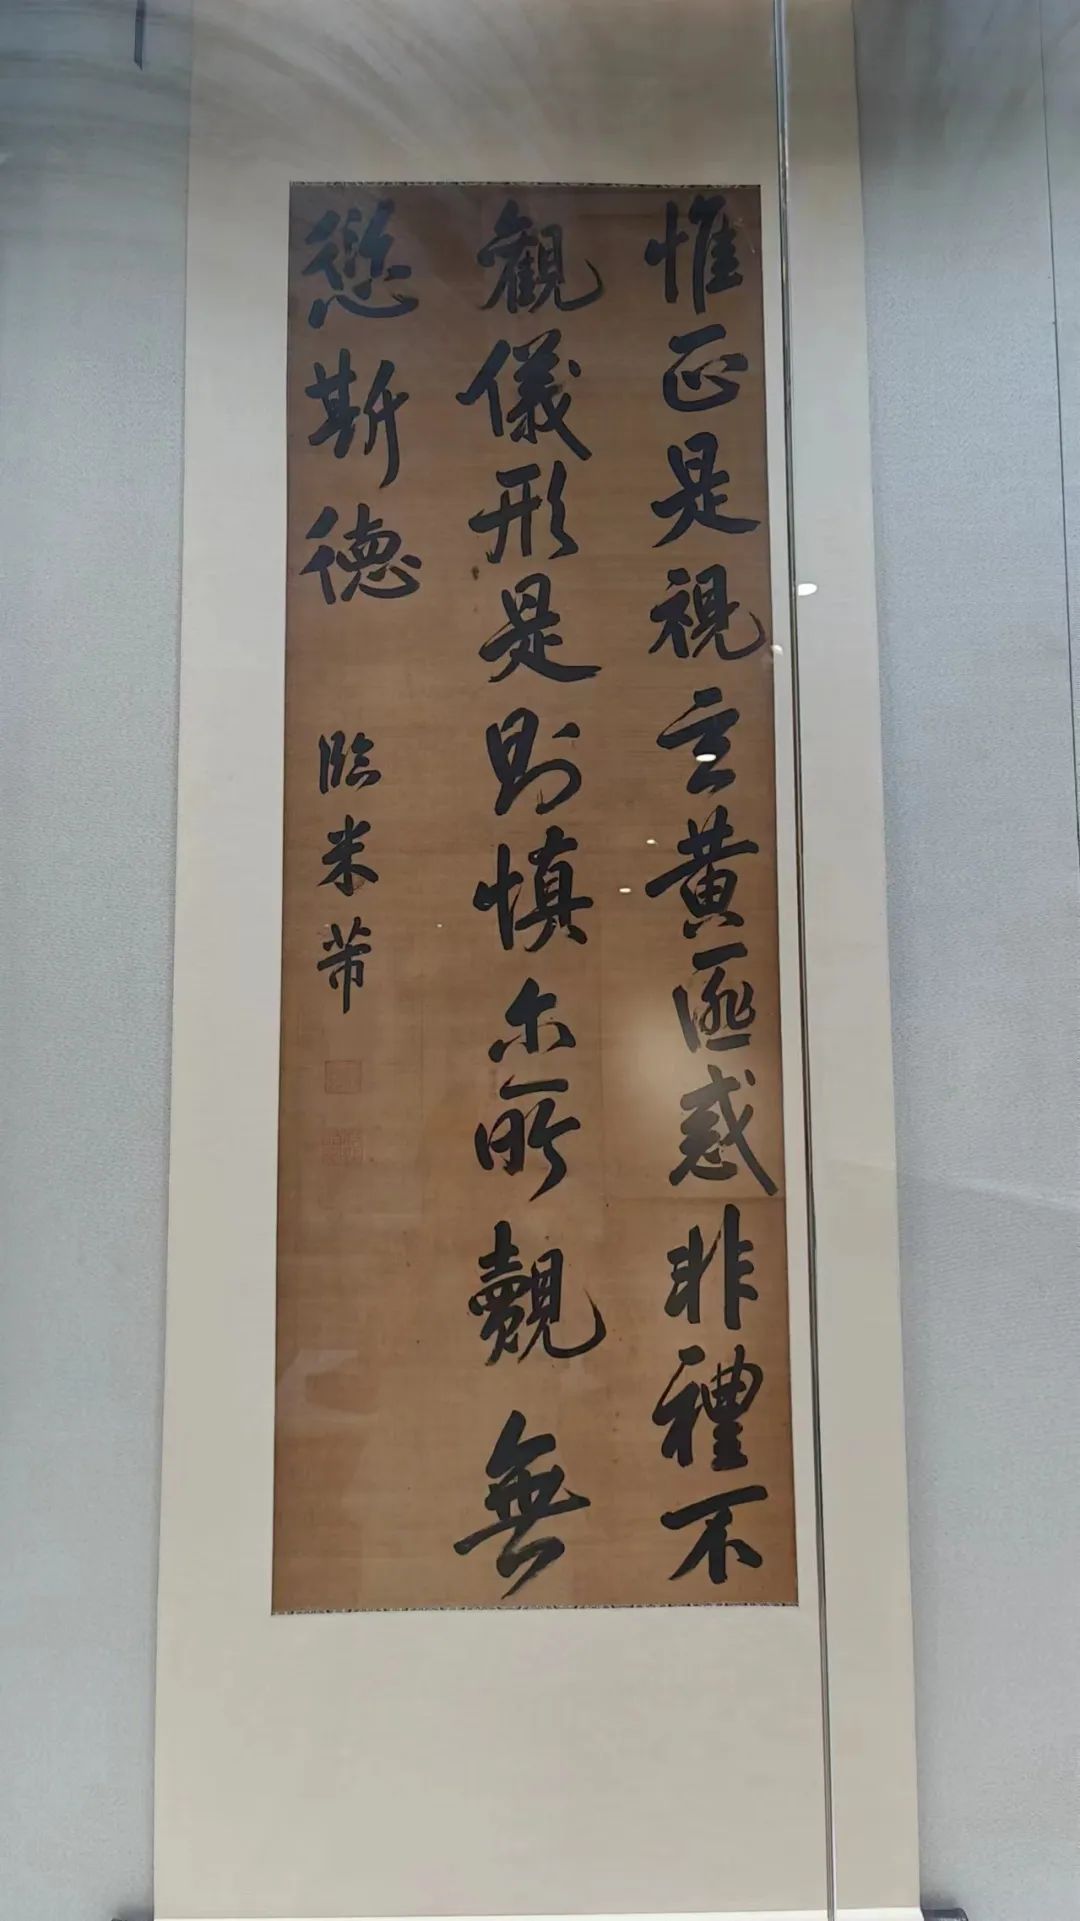 惟正是視玄黄匪惑非禮不
觀儀形是則慎尔所覿無
愆斯德
臨米芾